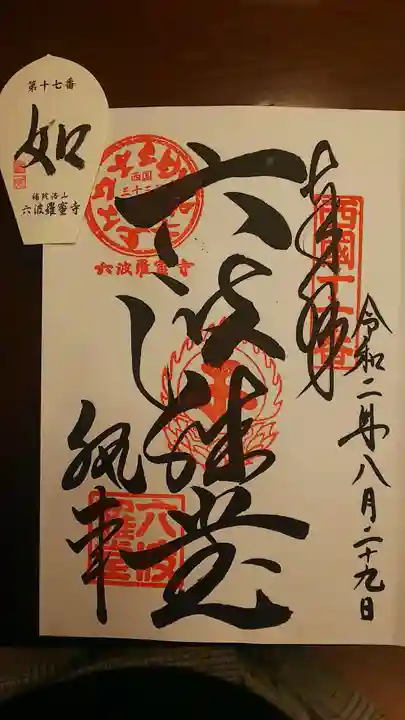 第十七番
如
補陀洛山
六波羅蜜寺
奉拝
西国十七番
令和二年八月二十九日
六波羅堂
西国
三十三
六波羅蜜寺
執事
六波
羅蜜